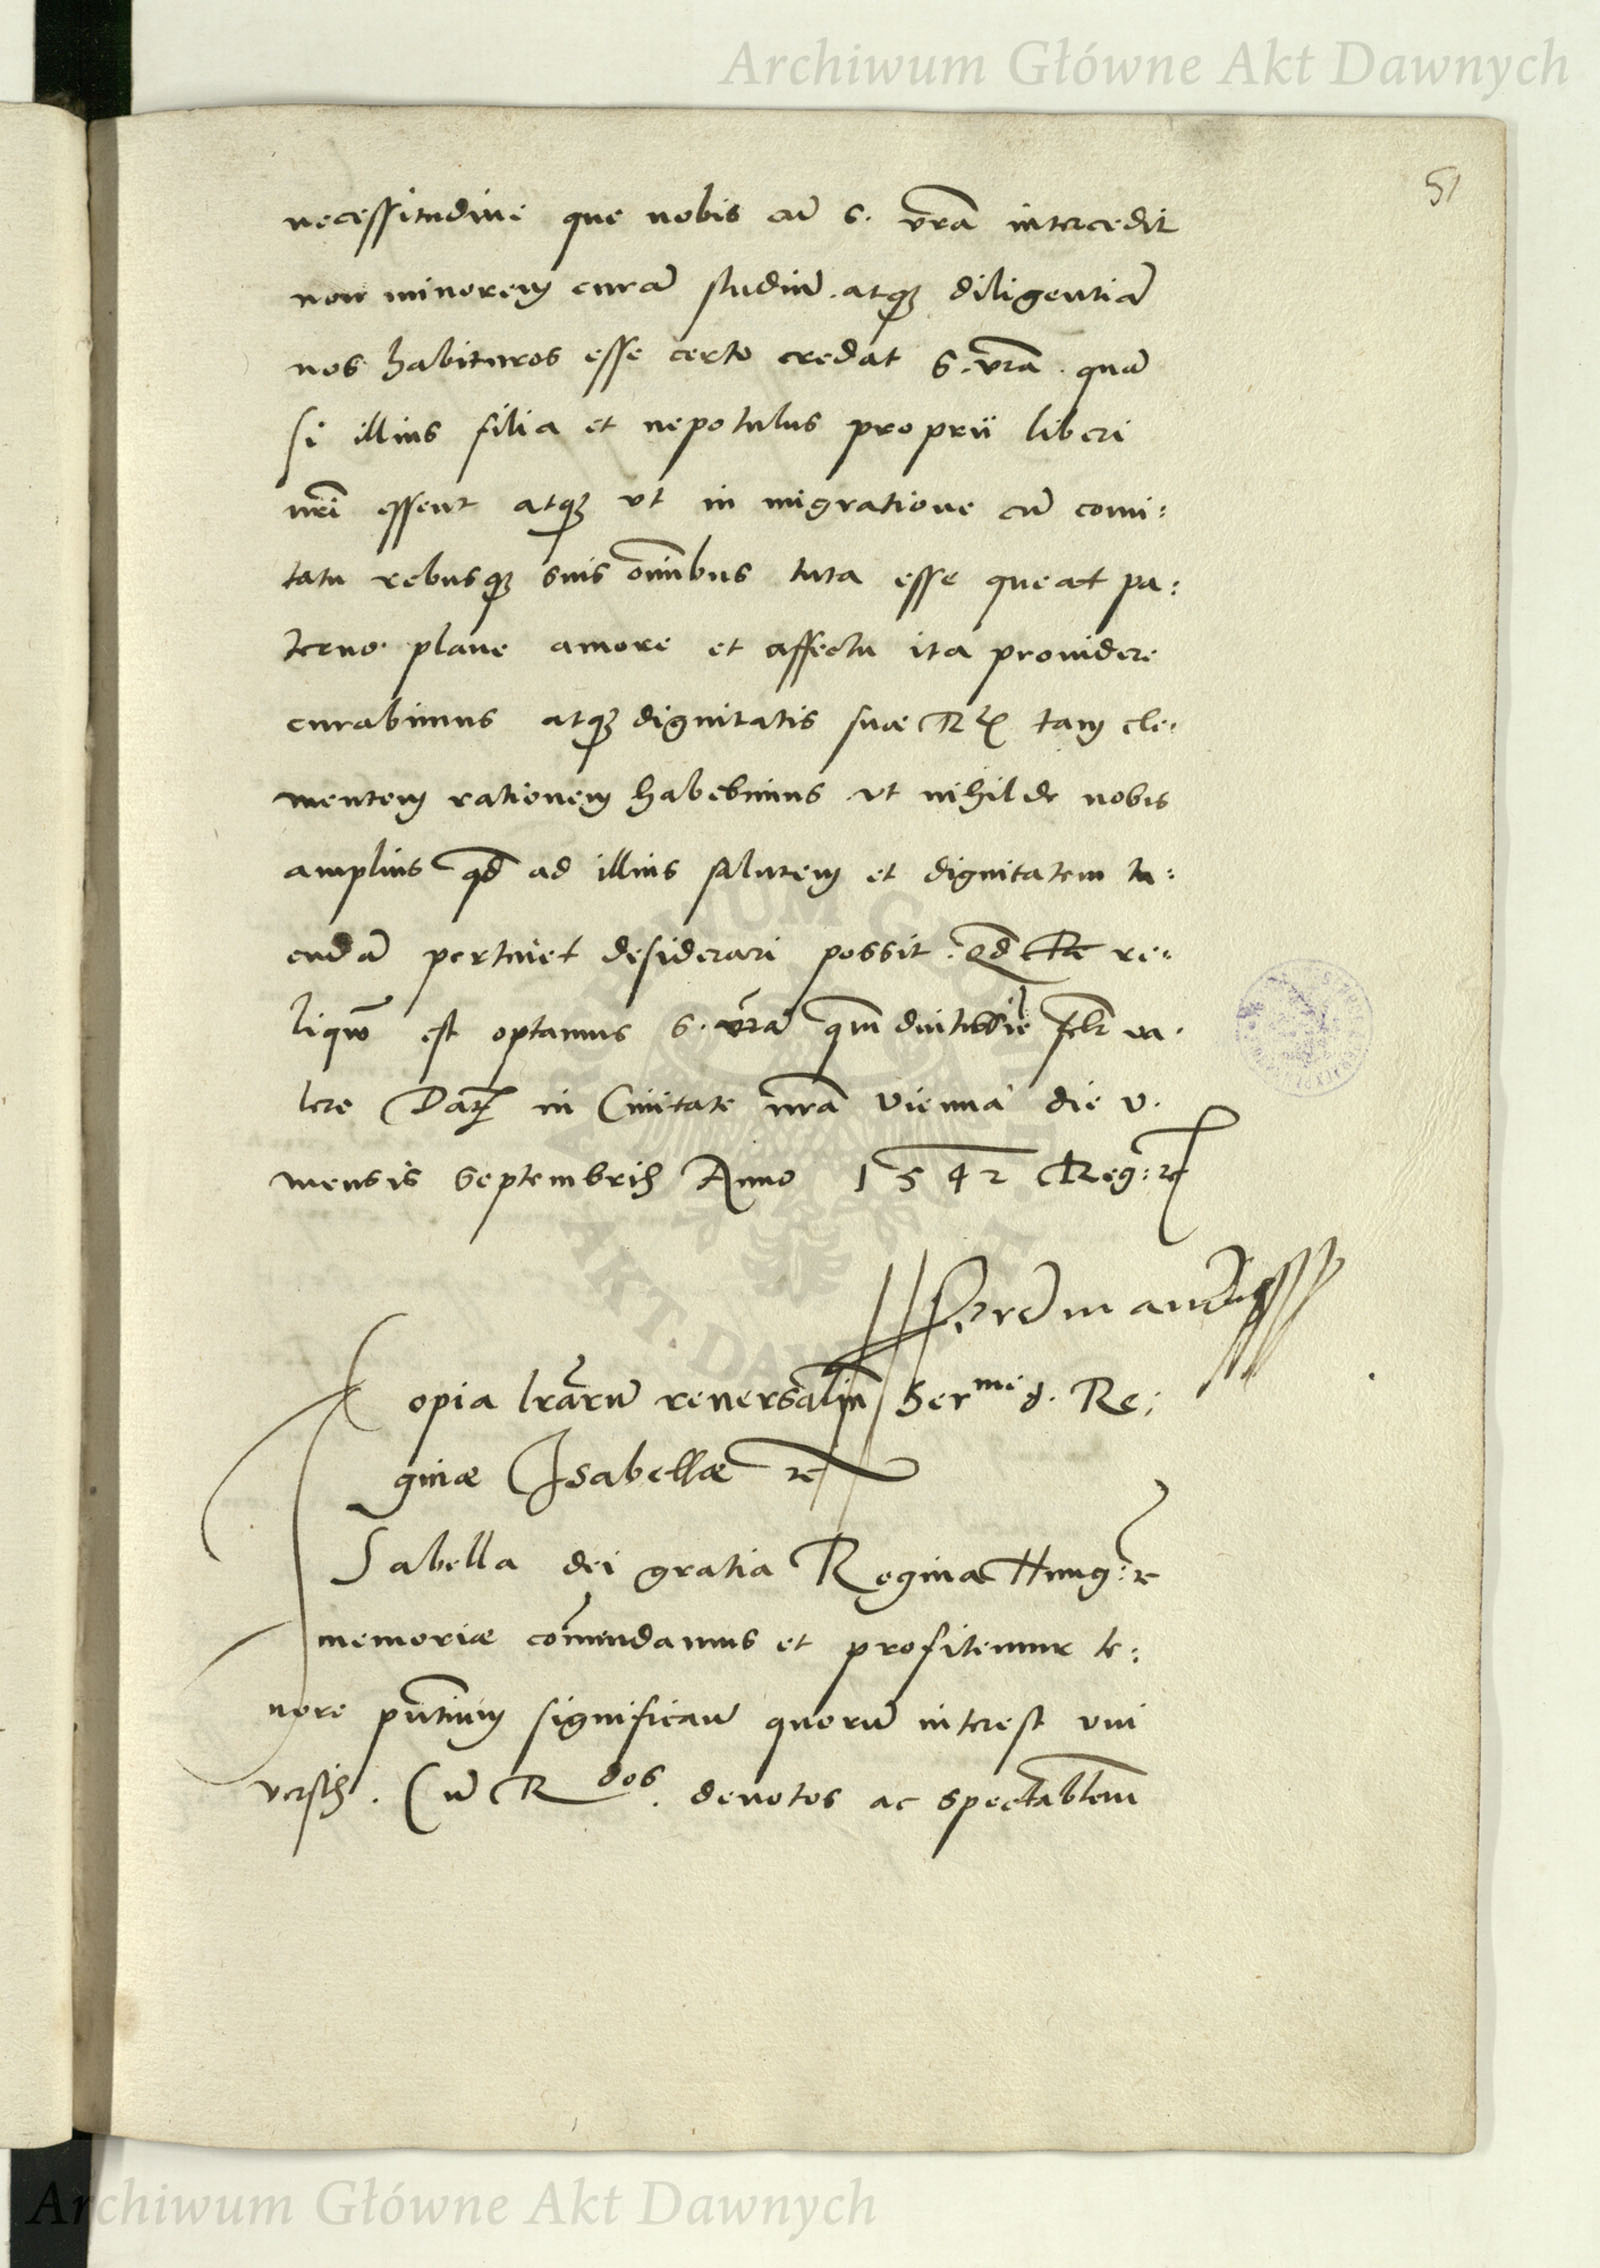 Archiwum Główne Akt Dawnych
51
necessitudine que nobis cū S. vr̄a intercedit
non minorem curā studiū atq; diligentiā
nos habituros esse certo credat S. vr̄a quā
si illius filia et nepotulus proprii liberi
nr̄i essent atq; vt in migratione cū comi:
tatu rebusq; suis om̄ibus tuta esse queat pa:
terno plane amore et affectu ita prouidere
curabimus atq; dignitatis suæ tam cle:
mentem rationem habebimus vt nihil de nobis
amplius qd̄ ad illius salutem et dignitatem tu:
endā pertinet desiderari possit. Qd̄ re:
liquū est optamus S. vr̄a va:
lere Dat in Ciuitate nr̄a Vienna die v.
mensis Septembris Anno 1542 Reg: rc
Ferdinandus
Copia lr̄arū reuersaliū Ser^me d. Re:
ginæ Isabellæ rc
Isabella dei gratia Regina Hung: rc
memoriæ cōmendamus et profitemur te:
nore pn̄tium significan̄ quorū interest vni
versis. Cū R^dos. deuotos ac spectabilem
Archiwum Główne Akt Dawnych